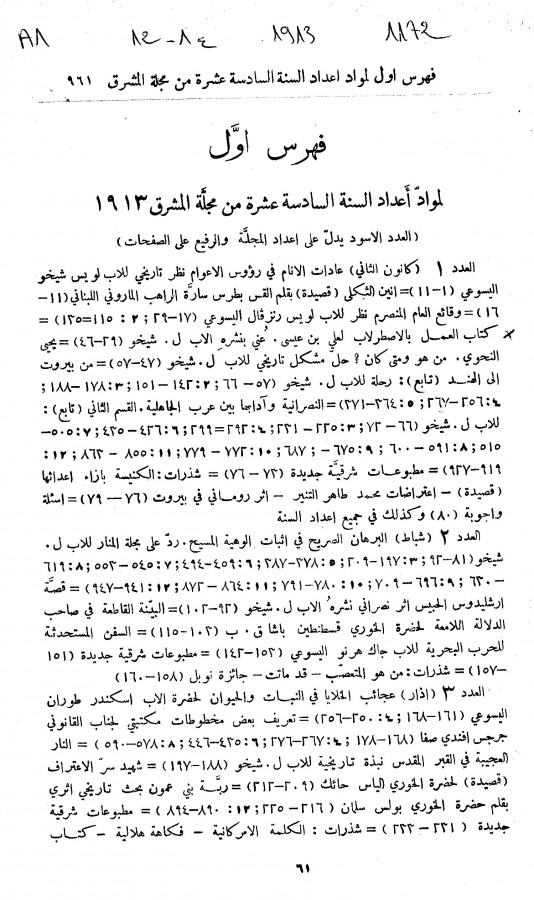 A1 12-18 1913 1172
فهرس اول لمواد اعداد السنة السادسة عشرة من مجلة المشرق ٩٦١
فهرس اوَّل
لموادّ أعداد السنة السادسة عشرة من مجلَّة المشرق ١٩١٣
(العدد الاسود يدلّ على اعداد المجلَّة والرفيع على الصفحات)
العدد ١ (كانون الثاني) عادات الانام في رؤوس الاعوام نظر تاريخي للاب لويس شيخو
اليسوعي (١-١١)=انين الثكلى (قصيدة) بقلم القس بطرس سارة الراهب الماروني اللبناني (١١-
١٦)=وقائع العام المنصرم نظر للاب لويس رنزڤال اليسوعي (١٧-٢٩; ٢: ١١٥=١٣٥)=
كتاب العمل بالاصطرلاب لعلي بن عيسى. عُني بنشره الاب ل. شيخو (٢٩-٤٦)=يحيى
النحوي. من هو ومتى كان? حلّ مشكل تاريخي للاب ل. شيخو (٤٧-٥٧)= من بيروت
الى الهند (تابع): رحلة للاب ل. شيخو (٥٧-٦٦; ٢: ١٤٢-١٥١; ٣: ١٧٨-١٨٨;
٤: ٢٥٦-٢٦٧; ٥: ٣٦٤-٣٧١)=النصرانية وآدابها بين عرب الجاهلية. القسم الثاني (تابع):
للاب ل. شيخو (٦٦-٧٢; ٣: ٢٢٥-٢٣١; ٤: ٢٩٢=٢٩٩; ٦: ٤٢٦-٤٣٥; ٧: ٥٠٥-
٥١٥; ٨: ٥٩١-٦٠٠; ٩: ٦٧٥-٦٨٧; ١٠: ٧٧٢-٧٧٩; ١١: ٨٥٥-٨٦٣; ١٢:
٩١٩-٩٢٧)= مطبوعات شرقيَّة جديدة (٧٣-٧٦)= شذرات: الكنيسة بازاء اعدائها
(قصيدة) - اعتراضات محمد طاهر التنير - اثر روماني في بيروت (٧٦-٧٩)= اسئلة
واجوبة (٨٠) وكذلك في جميع اعداد السنة
العدد ٢ (شباط) البرهان الصريح في اثبات الوهية المسيح. ردّ على مجلة المنار للاب ل.
شيخو (٨١-٩٢; ٣: ١٩٧-٢٠٩; ٥: ٣٧٨-٣٨٧; ٦: ٤٠٩-٤٩٤; ٧: ٥٤٥-٥٥٣; ٨: ٦١٩
-٦٣٠; ٩: ٦٩٦-٧٠٩; ١٠: ٧٨٠-٧٩١; ١١: ٨٦٤-٨٧٢; ١٢: ٩٤١-٩٤٧)= قصَّة
ارشليدوس الحبيس اثر نصراني نشره الاب ل. شيخو (٩٢-١٠٢)= البيّنة القاطعة في صاحب
الدلالة اللامعة لحضرة الخوري قسطنطين باشا ق. ب (١٠٣-١١٥)= السفن المستحدثة
للحرب البحرية للاب جاك هرنو اليسوعي (١٣٥-١٤٢)= مطبوعات شرقية جديدة (١٥١
-١٥٧)= شذرات: من هو المتعصّب - قد ماتت - جائزة نوبل (١٥٨-١٦٠)
العدد ٣ (اذار) عجائب الخلايا في النبات والحيوان لحضرة الاب اسكندر طوران
اليسوعي (١٦١-١٦٨; ٤: ٢٥٠-٢٥٦)= تعريف بعض مخطوطات مكتبتي لجناب القانوني
جرجس افندي صفا (١٦٨-١٧٨; ٤: ٢٦٧-٢٧٦; ٦: ٤٣٥-٤٤٦; ٨: ٥٧٨-٥٩٠)= النار
العجيبة في القبر المقدس نبذة تاريخية للاب ل. شيخو (١٨٨-١٩٧)= شهيد سرّ الاعتراف
(قصيدة) لحضرة الخوري الياس حائك (٢٠٩-٢١٢)= ربَّة بني عمون بحث تاريخي اثري
بقلم حضرة الخوري بولس سلمان (٢١٦-٢٢٥; ١٢: ٨٩٠-٨٩٤)= مطبوعات شرقية
جديدة (٢٣١-٢٣٣)= شذرات: الكلمة الامركانية - فكاهة هلالية - كتاب
٦١